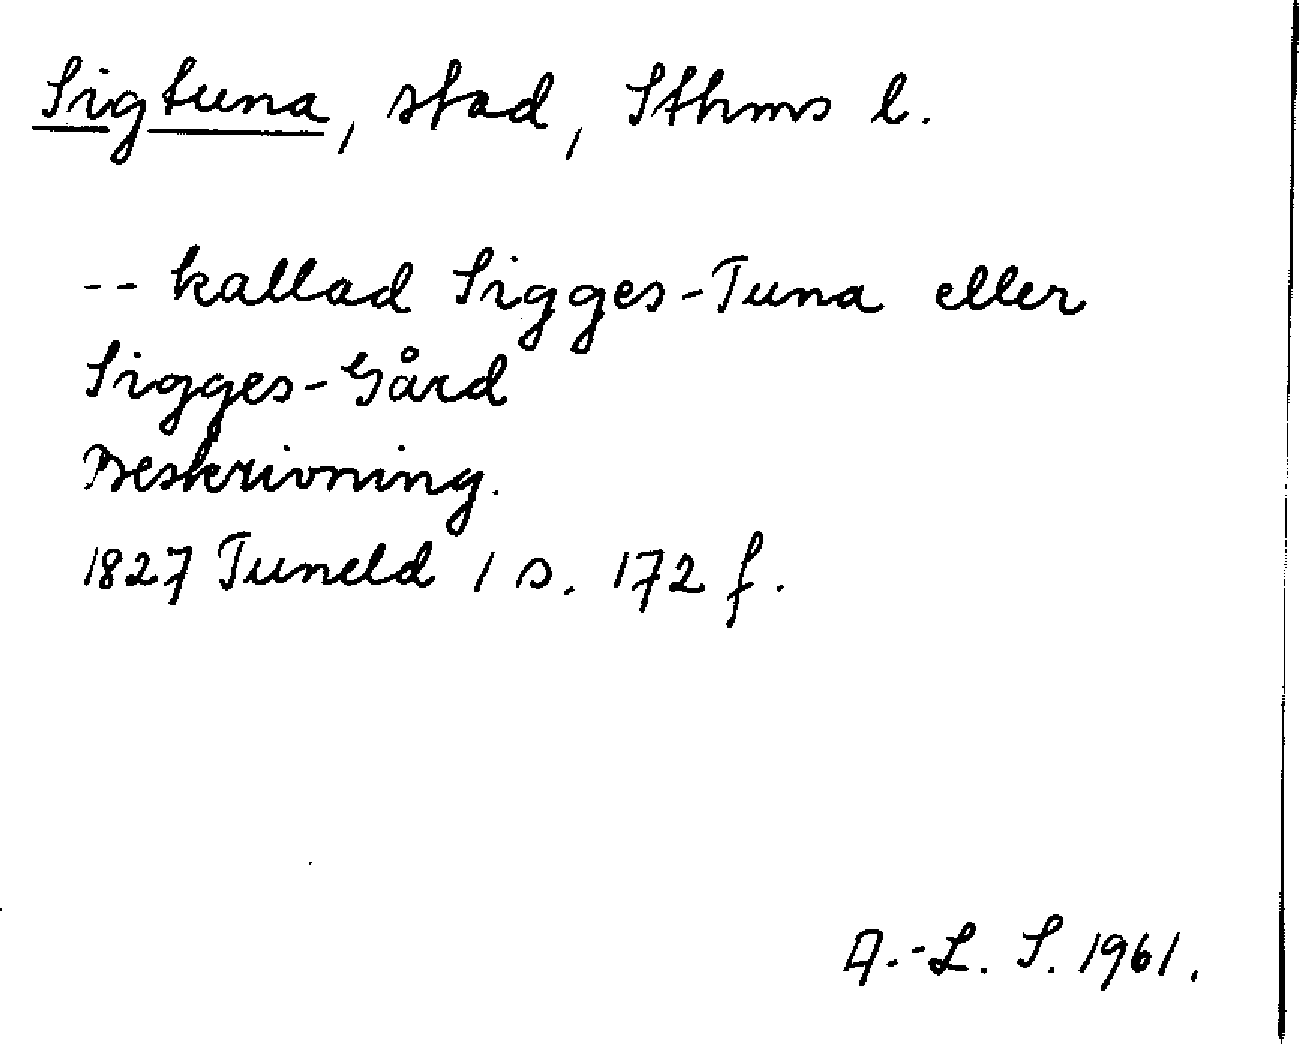 Sigtuna, stad, Sthms l.
-- kallad Sigges-Tuna eller
Sigges-Gård
Beskrivning.
1827 Tuneld 1 s. 172 f.
A.-L. S. 1961.